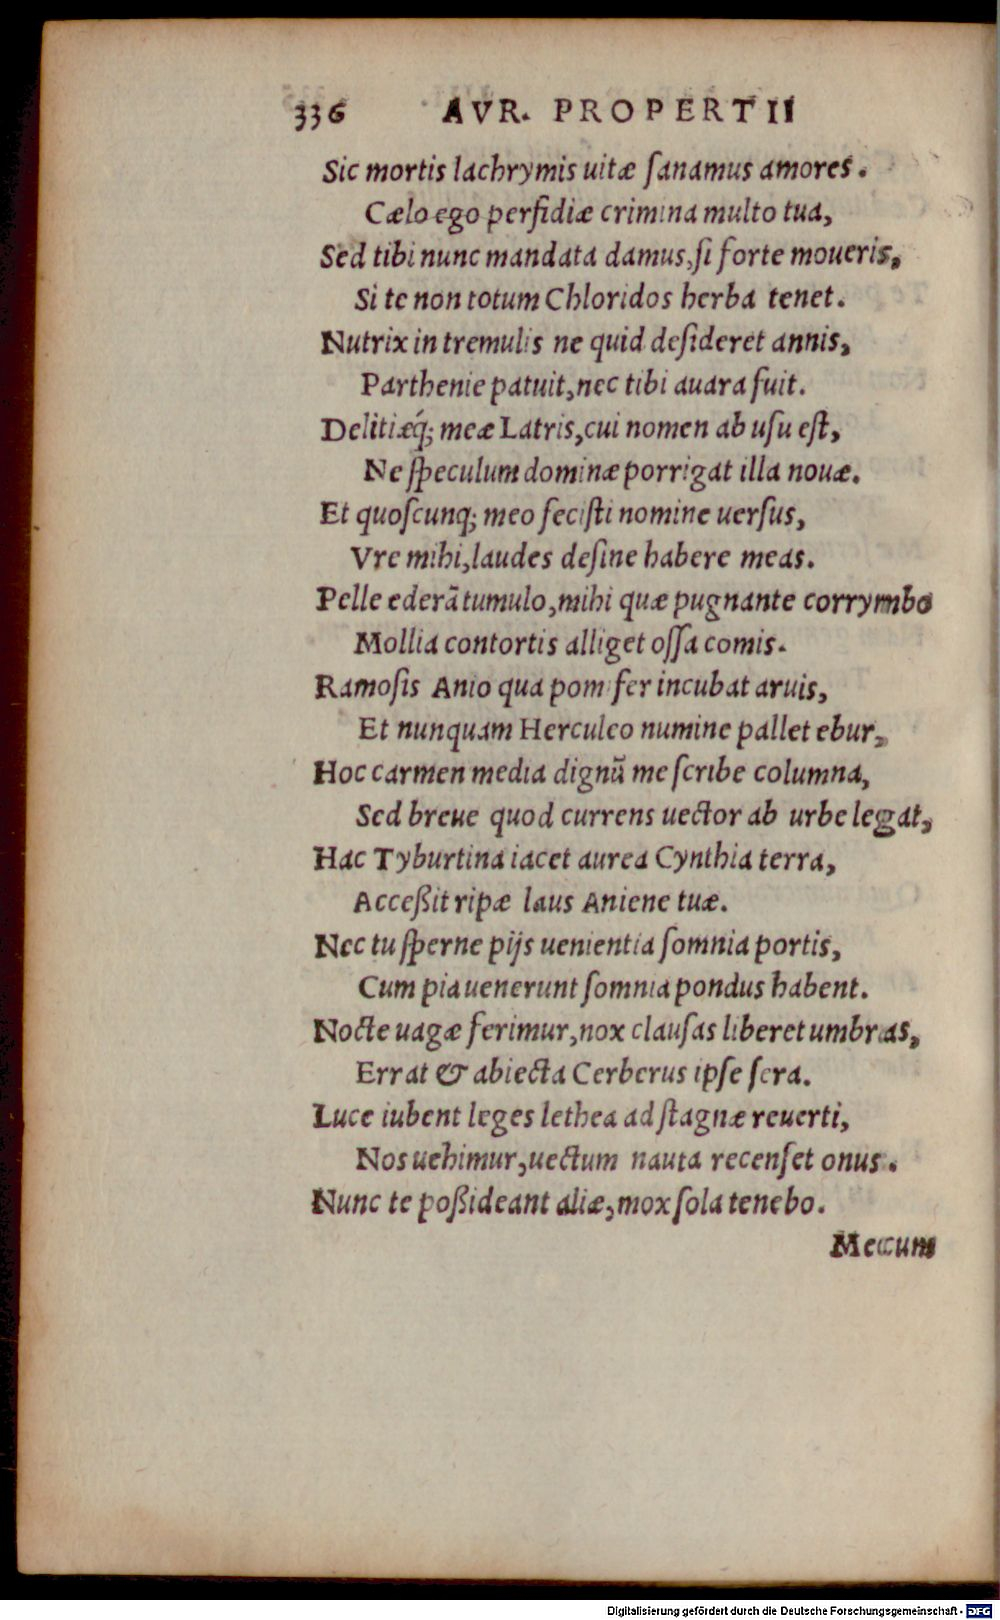 336 AVR. PROPERTII
Sic mortis lachrymis uitæ ſanamus amores.
Cælo ego perfidiæ crimina multo tua,
Sed tibi nunc mandata damus, ſi forte moueris,
Si te non totum Chloridos herba tenet.
Nutrix in tremulis ne quid deſideret annis,
Parthenie patuit, nec tibi auara fuit.
Delitiæq́; meæ Latris, cui nomen ab uſu eſt,
Ne ſpeculum dominæ porrigat illa nouæ.
Et quoſcunq; meo feciſti nomine uerſus,
Vre mihi, laudes deſine habere meas.
Pelle ederã tumulo, mihi quæ pugnante corrymbo
Mollia contortis alliget oſſa comis.
Ramoſis Anio qua pomifer incubat aruis,
Et nunquam Herculeo numine pallet ebur,
Hoc carmen media dignũ me ſcribe columna,
Sed breue quod currens uector ab urbe legat,
Hac Tyburtina iacet aurea Cynthia terra,
Acceßit ripæ laus Aniene tuæ.
Nec tu ſperne pijs uenientia ſomnia portis,
Cum pia uenerunt ſomnia pondus habent.
Nocte uagæ ferimur, nox clauſas liberet umbras,
Errat & abiecta Cerberus ipſe ſera.
Luce iubent leges lethea ad ſtagnæ reuerti,
Nos uehimur, uectum nauta recenſet onus.
Nunc te poßideant aliæ, mox ſola tenebo.
Mecum
Digitalisierung gefördert durch die Deutsche Forschungsgemeinschaft - DFG